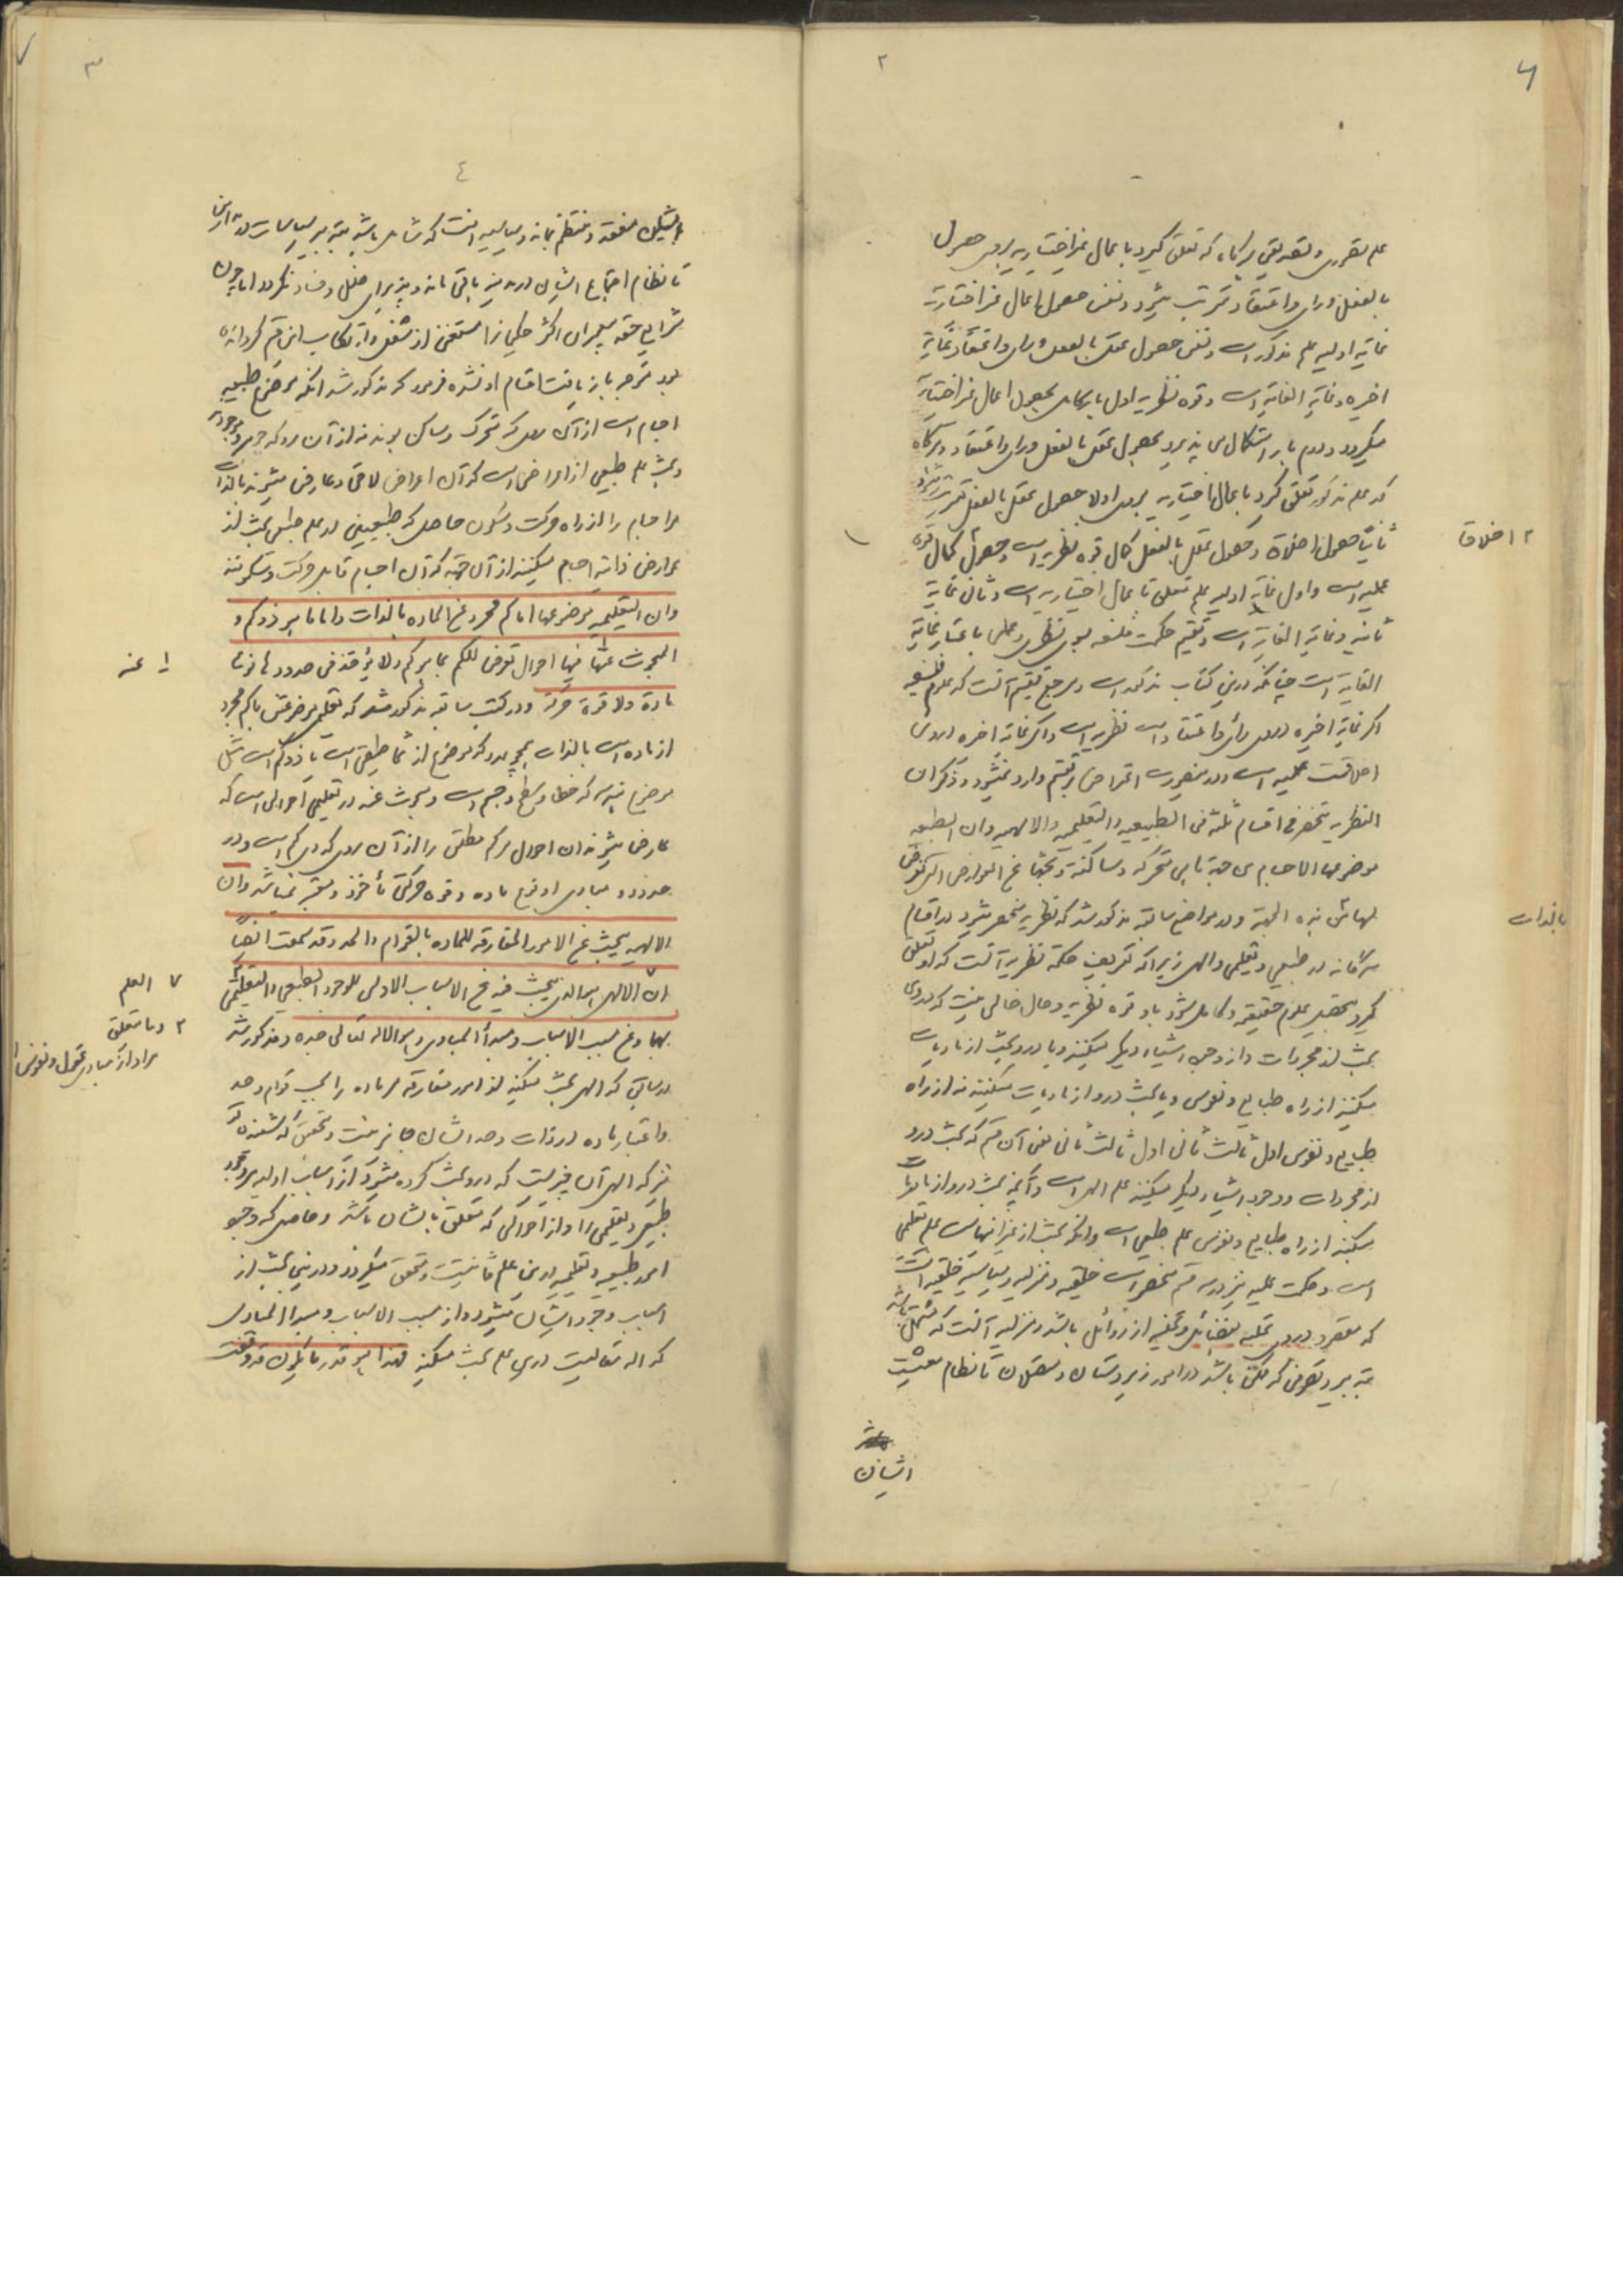 علم تصوری و تصدیقی هرگاه که تعلق گیرد باعمال غیر اختیاریه بروی حصول
بالفعل و رای و اعتقاد مترتب میشود و نفس حصول اعمال غیر اختیاریه
غایة اولیه علم مذکور است و نفس حصول عقل بالفعل و رای و اعتقاد غایة
اخیره و غایة الغایة است و قوه نظریه اول بار کامل بحصول اعمال غیر اختیاریه
میگردد و دوم بار استکمال می پذیرد بحصول عقل بالفعل و رای و اعتقاد و هرگاه
که علم مذکور تعلق گیرد باعمال اختیاریه بروی اولا حصول عقل بالفعل مترتب
ثانیا حصول اخلاق و حصول عقل بالفعل کمال قوه نظریه است و حصول کمال قوه
عملیه است و اول غایة اولیه علم متعلق باعمال اختیاریه است و ثانی غایة
ثانیه و غایة الغایة است و تقسیم حکمت فلسفه بسوی نظری و عملی باعتبار غایة
الغایة است چنانکه درین کتاب مذکور است و مرجع تقسیم آنست که علوم فلسفیه
اگر غایة اخیره دروی رای و اعتقاد است نظریه است و اگر غایة اخیره دروی
اخلاقست عملیه است و درینصورت اعتراض بر تقسیم وارد نمیشود و ذکر ان
النظریه تنحصر فی اقسام ثلثه فی الطبیعیه و التعلیمیه و الالهیه و ان الطبیعیه
موضوعها الاجسام من جهة ما هی متحرکه و ساکنة و بحثها عن العوارض التی تعرض
لها من هذه الجهة و در مواضع سابقه مذکور شد که نظریه منحصر میشود در اقسام
سه گانه در طبیعی و تعلیمی و الهی زیرا که تعریف حکمة نظریه آنست که او تعلق
گیرد بتحصیل علوم حقیقیه و کامل شود باو قوه نظریه و حال خالی نیست که دروی
بحث از مجردات و از وجود اشیاء دیگر میکنند و یا درو بحث از مادیات
میکنند از راه طبایع و نفوس و یا بحث درو از مادیات میکنند نه از راه
طبایع و نفوس اول ثالث ثانی اول ثالث ثانی یعنی آن قسم که بحث درو
از مجردات و وجود اشیاء دیگر میکنند علم الهی است و آنچه بحث درو از مادیات
میکنند از راه طبایع و نفوس علم طبیعی است وانکه بحث از غیر اینهاست علم تعلیمی
است و حکمت عملیه نیز درسه قسم منحصر است خلقیه و منزلیه و سیاسیه خلقیه آنست
که مقصود دروی تحلیه بفضایل و تخلیه از رذائل باشد و منزلیه آنست که مشتمل باشد
تدبیر و تصرفی که متعلق باشد در امور زیردستان و متعلقان تا نظام معیشت
ایشان
۲ اخلاق
بالذات
۲
۶
۳
۷
٤
ایشان منعقد و منتظم بماند و سیاسیه آنست که شامل باشد بتدبیر سیاسات
تا نظام اجتماع ایشان در مدینه باقی ماند و پذیرای خلل و فساد نگردد اما چون
شرایع حقه پیغمبران اکثر حکما را مستغنی از شغل و ارتکاب این قسم گردانیده
بود متوجه بازیافت اقسام او نشده فرمود که مذکور شد انکه موضوع طبیعیه
اجسام است از آن روی که متحرک و ساکن بوند نه از آن رو که جوهر و موجود
و بحث علم طبیعی از اعراض است که آن اعراض لاحق و عارض میشوند بالذات
مر اجسام را از راه حرکت و سکون حاصل که طبیعیین در علم طبیعی بحث از
عوارض ذاتیه اجسام میکنند از آن جهة که آن اجسام قابل حرکت و سکونند
وان التعلیمیه موضوعها اما کم مجرد عن الماده بالذات و اما ما هو ذو کم و
المبحوث عنها فیها احوال تعرض للکم بما هو کم و لا یؤخذ فی حدودها نوع
مادة ولا قوة حرکة و در کتب سابقه مذکور شد که تعلیمی موضوعش یا کم مجرد
از ماده است بالذات همچو عدد که موضوع ارثماطیقی است یا ذو کم است مثل
موضوع هندسه که خط و سطح و جسم است و مبحوث عنه در تعلیمی احوالی است که
عارض میشوند ان احوال مرکم مطلق را از آن روی که وی کم است و در
حدود و مبادی او نوع ماده و قوه حرکتی مأخوذ و معتبر نمیباشد وان
الالهیه یبحث عن الامور المفارقه للماده بالقوام والحد وقد سمعت ایضا
ان الالهی هو الذی یبحث فیه عن الاسباب الاولی للوجود الطبیعی و التعلیمی
بها و عن مسبب الاسباب و مبدأ المبادی و هو الاله تعالی جده و مذکور شد
در سابق که الهی بحث میکند از امور مفارقه مر ماده را بحسب قوام و حد
و اعتبار ماده در ذات و حد ایشان جایز نیست و تحقیق که شنیدی تو
نیز که الهی آن چیزیست که درو بحث کرده میشود از اسباب اولیه وجود
طبیعی و تعلیمی را و از احوالی که متعلق بایشان باشد و حاصل که وجود
امور طبیعیه و تعلیمیه درین علم ثابت و متحقق میگردد و درین بحث از
اسباب وجود ایشان میشود و از مسبب الاسباب و مبدأ المبادی
که اله تعالیست درین علم بحث میکنند فهذا هو قدر ما یکون قد وقفت
۱ عنه
۷ العلم
۲ و ما یتعلق
مراد از مبادی عقول و نفوس